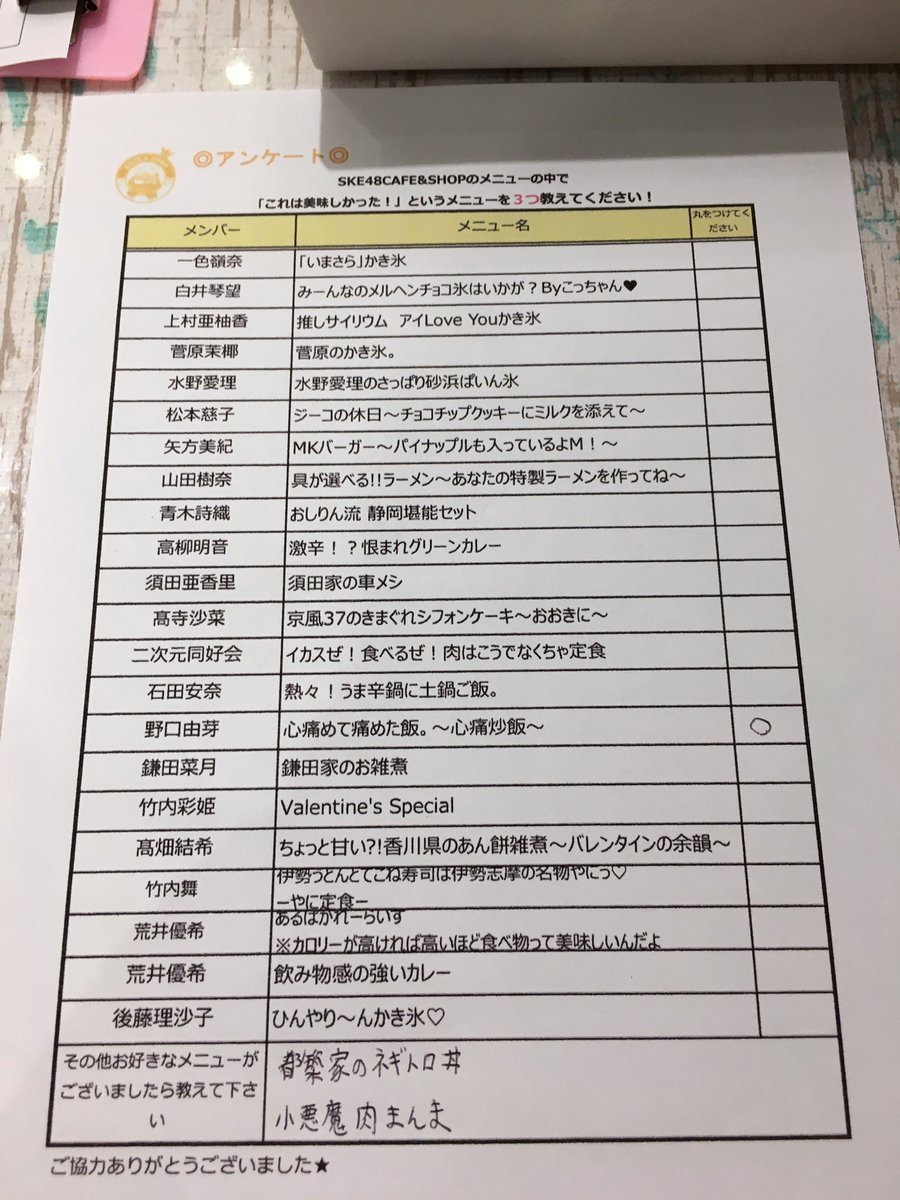 ◎アンケート◎
SKE48CAFE&SHOPのメニューの中で
「これは美味しかった！」というメニューを３つ教えてください！
メンバー メニュー名 丸をつけてく
ださい
一色嶺奈 「いまさら」かき氷
白井琴望 みーんなのメルヘンチョコ氷はいかが？Byこっちゃん♥
上村亜柚香 推しサイリウム アイLove Youかき氷
菅原茉椰 菅原のかき氷。
水野愛理 水野愛理のさっぱり砂浜ぱいん氷
松本慈子 ジーコの休日～チョコチップクッキーにミルクを添えて～
矢方美紀 MKバーガー～パイナップルも入っているよM！～
山田樹奈 具が選べる!!ラーメン～あなたの特製ラーメンを作ってね～
青木詩織 おしりん流 静岡堪能セット
高柳明音 激辛！？恨まれグリーンカレー
須田亜香里 須田家の車メシ
髙寺沙菜 京風37のきまぐれシフォンケーキ～おおきに～
二次元同好会 イカスぜ！食べるぜ！肉はこうでなくちゃ定食
石田安奈 熱々！うま辛鍋に土鍋ご飯。
野口由芽 心痛めて痛めた飯。～心痛炒飯～ ○
鎌田菜月 鎌田家のお雑煮
竹内彩姫 Valentine's Special
髙畑結希 ちょっと甘い?!香川県のあん餅雑煮～バレンタインの余韻～
竹内舞 伊勢うどんとてこね寿司は伊勢志摩の名物やにっ♡
ーやに定食ー
荒井優希 あるばかれーらいす
※カロリーが高ければ高いほど食べ物って美味しいんだよ
荒井優希 飲み物感の強いカレー
後藤理沙子 ひんやり～んかき氷♡
その他お好きなメニューが
ございましたら教えて下さ
い
都築家のネギトロ丼
小悪魔肉まんま
ご協力ありがとうございました★